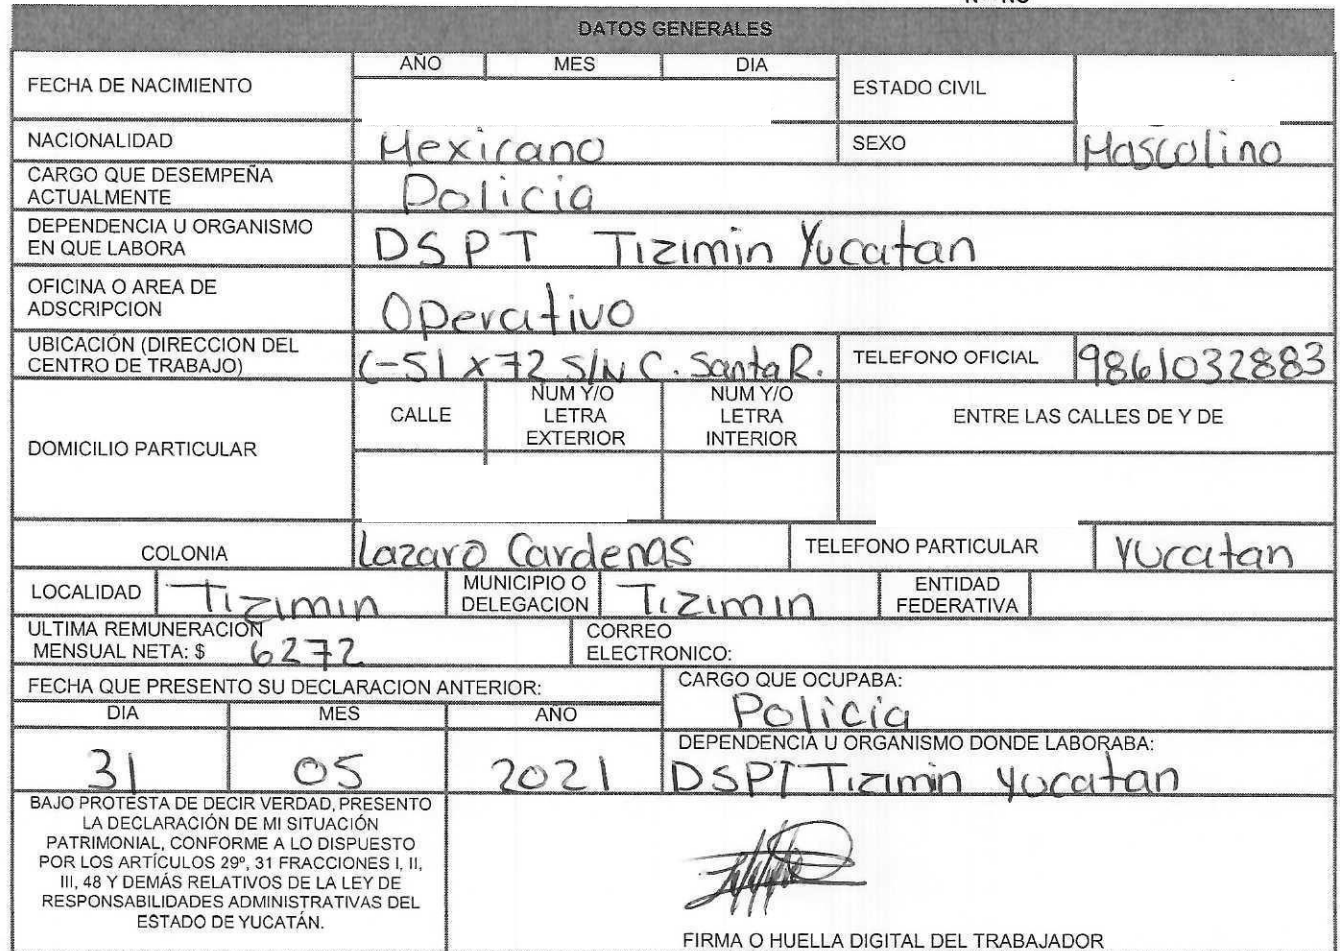 DATOS GENERALES
FECHA DE NACIMIENTO AÑO MES DIA ESTADO CIVIL
NACIONALIDAD Mexicano SEXO Mascolino
CARGO QUE DESEMPEÑA
ACTUALMENTE Policia
DEPENDENCIA U ORGANISMO
EN QUE LABORA DSPT Tizimin Yucatan
OFICINA O AREA DE
ADSCRIPCION Operativo
UBICACIÓN (DIRECCION DEL
CENTRO DE TRABAJO) C-51 x 72 S/N C. Santa R. TELEFONO OFICIAL 9861032883
DOMICILIO PARTICULAR CALLE NUM Y/O
LETRA
EXTERIOR NUM Y/O
LETRA
INTERIOR ENTRE LAS CALLES DE Y DE
COLONIA Lazaro Cardenas TELEFONO PARTICULAR Yucatan
LOCALIDAD Tizimin MUNICIPIO O
DELEGACION Tizimin ENTIDAD
FEDERATIVA
ULTIMA REMUNERACION
MENSUAL NETA: $ 6272 CORREO
ELECTRONICO:
FECHA QUE PRESENTO SU DECLARACION ANTERIOR: CARGO QUE OCUPABA:
DIA MES AÑO Policia
31 05 2021 DEPENDENCIA U ORGANISMO DONDE LABORABA:
DSPT Tizimin yucatan
BAJO PROTESTA DE DECIR VERDAD, PRESENTO
LA DECLARACIÓN DE MI SITUACIÓN
PATRIMONIAL, CONFORME A LO DISPUESTO
POR LOS ARTÍCULOS 29º, 31 FRACCIONES I, II,
III, 48 Y DEMÁS RELATIVOS DE LA LEY DE
RESPONSABILIDADES ADMINISTRATIVAS DEL
ESTADO DE YUCATÁN.
FIRMA O HUELLA DIGITAL DEL TRABAJADOR